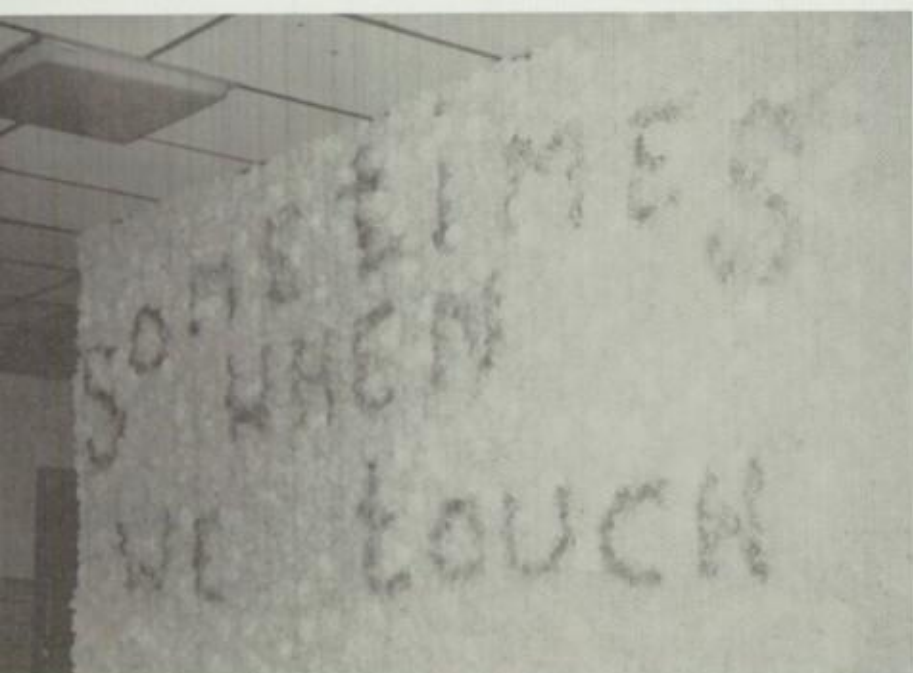 SOMEtIMES
WHEN
WE tOUCH